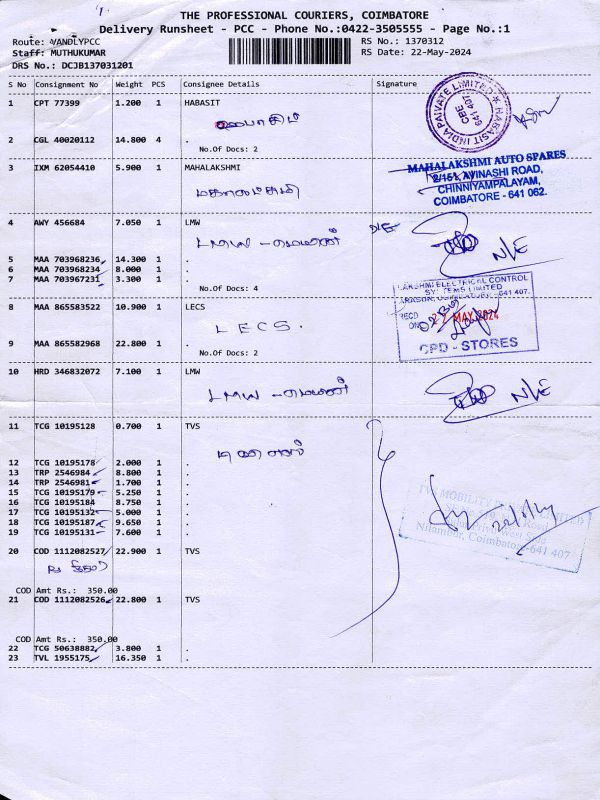 THE PROFESSIONAL COURIERS, COIMBATORE
Delivery Runsheet - PCC - Phone No.:0422-3505555 - Page No.:1
Route: VANDLYPCC
RS No.: 1370312
Staff: MUTHUKUMAR
RS Date: 22-May-2024
DRS No.: DCJB137031201
S No Consignment No Weight PCS Consignee Details Signature
1 CPT 77399 1.200 1 HABASIT
HABASIT INDIA PRIVATE LIMITED
CBE
641 407
2 CGL 40020112 14.800 4 .
No.Of Docs: 2
3 IXM 62054410 5.900 1 MAHALAKSHMI
MAHALAKSHMI AUTO SPARES
2/151, AVINASHI ROAD,
CHINNIYAMPALAYAM,
COIMBATORE - 641 062.
4 AWY 456684 7.050 1 LMW
LMW -
N/E
5 MAA 703968236 14.300 1 .
6 MAA 703968234 8.000 1 .
7 MAA 703967231 3.300 1 .
No.Of Docs: 4
LAKSHMI ELECTRICAL CONTROL
SYSTEMS LIMITED
ARASUR, COIMBATORE - 641 407.
RECD
ON 22 MAY 2024
CPD - STORES
8 MAA 865583522 10.900 1 LECS
LECS.
9 MAA 865582968 22.800 1 .
No.Of Docs: 2
10 HRD 346832072 7.100 1 LMW
LMW -
N/E
11 TCG 10195128 0.700 1 TVS
12 TCG 10195178 2.000 1 .
13 TRP 2546984 8.800 1 .
14 TRP 2546981 1.700 1 .
15 TCG 10195179 5.250 1 .
16 TCG 10195184 8.750 1 .
17 TCG 10195132 5.000 1 .
18 TCG 10195187 9.650 1 .
19 TCG 10195131 7.600 1 .
TVS MOBILITY PRIVATE LIMITED
Nilambur, Coimbatore-641 407
20 COD 1112082527 22.900 1 TVS
COD Amt Rs.: 350.00
21 COD 1112082526 22.800 1 TVS
COD Amt Rs.: 350.00
22 TCG 50638882 3.800 1 .
23 TVL 1955175 16.350 1 .